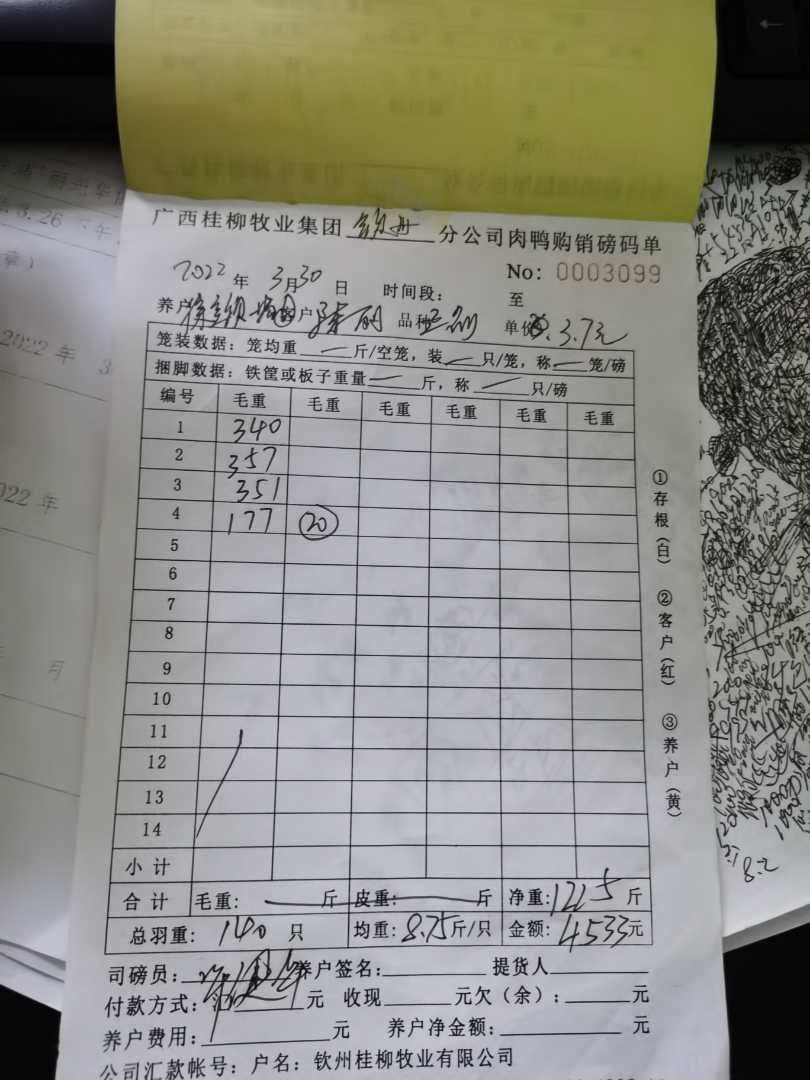 广西桂柳牧业集团 钦州 分公司肉鸭购销磅码单
2022 年 3月30 日 时间段： 至 No: 0003099
养户 客户 品种 单价 3.7元
笼装数据：笼均重 — 斤/空笼，装 — 只/笼，称 — 笼/磅
捆脚数据：铁筐或板子重量 — 斤，称 — 只/磅
编号 毛重 毛重 毛重 毛重 毛重 毛重
1 340
2 357
3 351
4 177 20
5
6
7
8
9
10
11
12
13
14
小计
合计 毛重： — 斤 皮重： — 斤 净重：1225 斤
总羽重：140 只 均重：8.75斤/只 金额：4533元
司磅员： 养户签名： 提货人
付款方式： 元 收现 元欠（余）： 元
养户费用： 元 养户净金额： 元
公司汇款帐号：户名：钦州桂柳牧业有限公司
①存根（白） ②客户（红） ③养户（黄）
3.26
2022 年 3
022 年
月
8.2